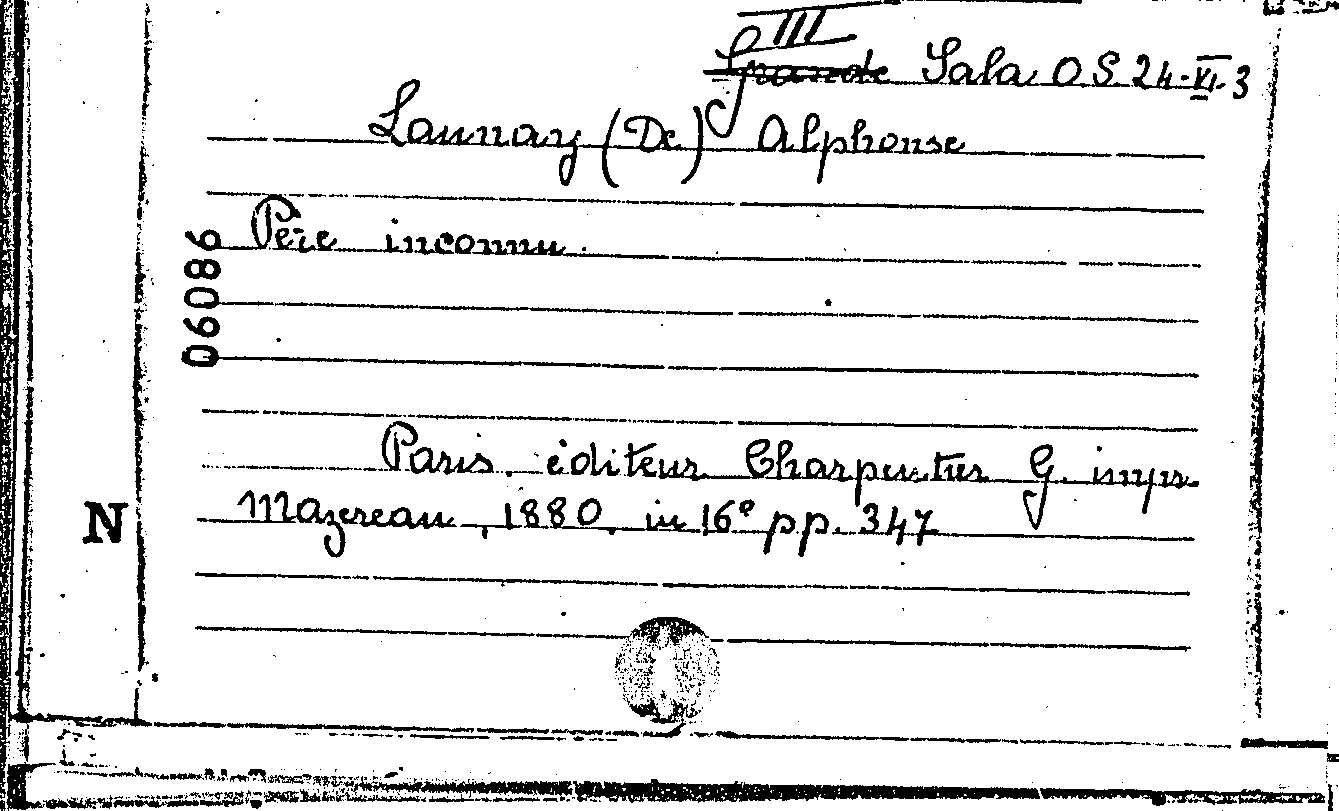 III
Grande Sala O.S. 24-VI-3
Launay (De) Alphonse
Père inconnu.
06086
Paris. éditeur Charpentier G. impr.
Mazereau, 1880, in 16° pp. 347
N